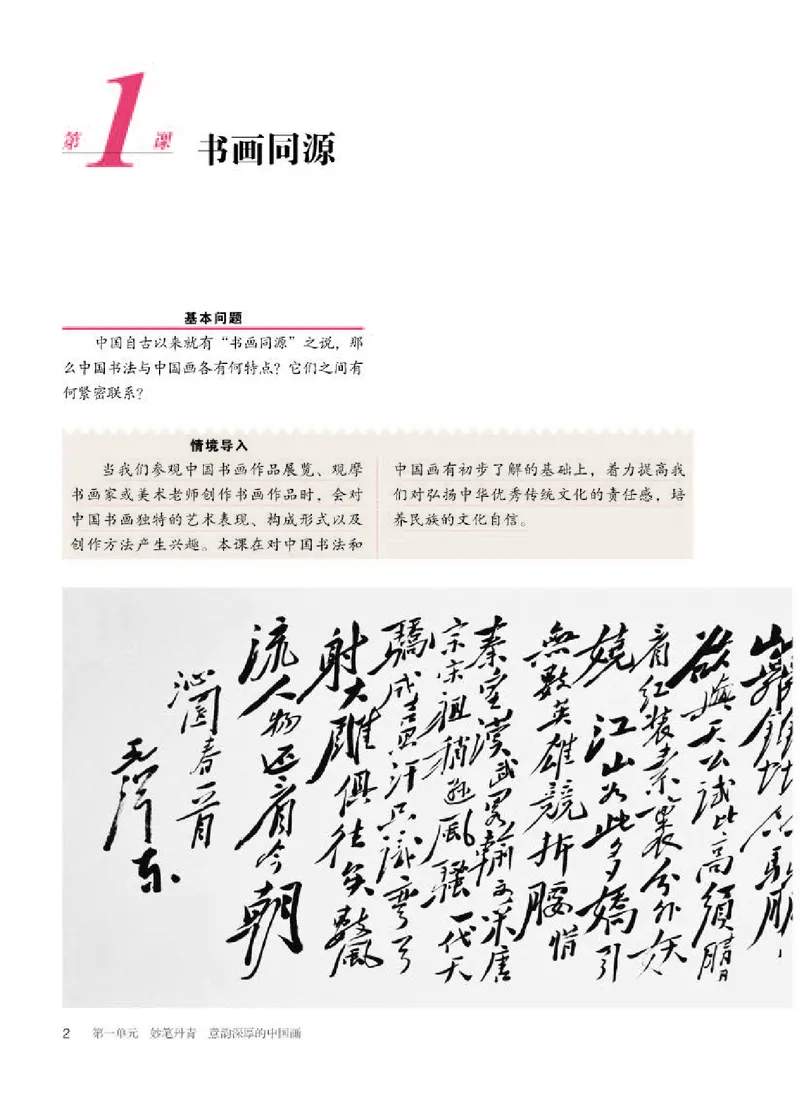 第1课
书画同源
基本问题
中国自古以来就有“书画同源”之说，那
么中国书法与中国画各有何特点？它们之间有
何紧密联系？
情境导入
当我们参观中国书画作品展览、观摩
书画家或美术老师创作书画作品时，会对
中国书画独特的艺术表现、构成形式以及
创作方法产生兴趣。本课在对中国书法和
中国画有初步了解的基础上，着力提高我
们对弘扬中华优秀传统文化的责任感，培
养民族的文化自信。
山舞銀蛇原馳
欲與天公試比高須晴日
看紅装素裹分外妖
嬈江山如此多嬌引
無數英雄競折腰惜
秦皇漢武略輸文采唐
宗宋祖稍遜風騷一代天
驕成吉思汗只識彎弓
射大雕俱往矣數風
流人物还看今朝
沁園春一首
毛澤东
2 第一单元 妙笔丹青 意韵深厚的中国画